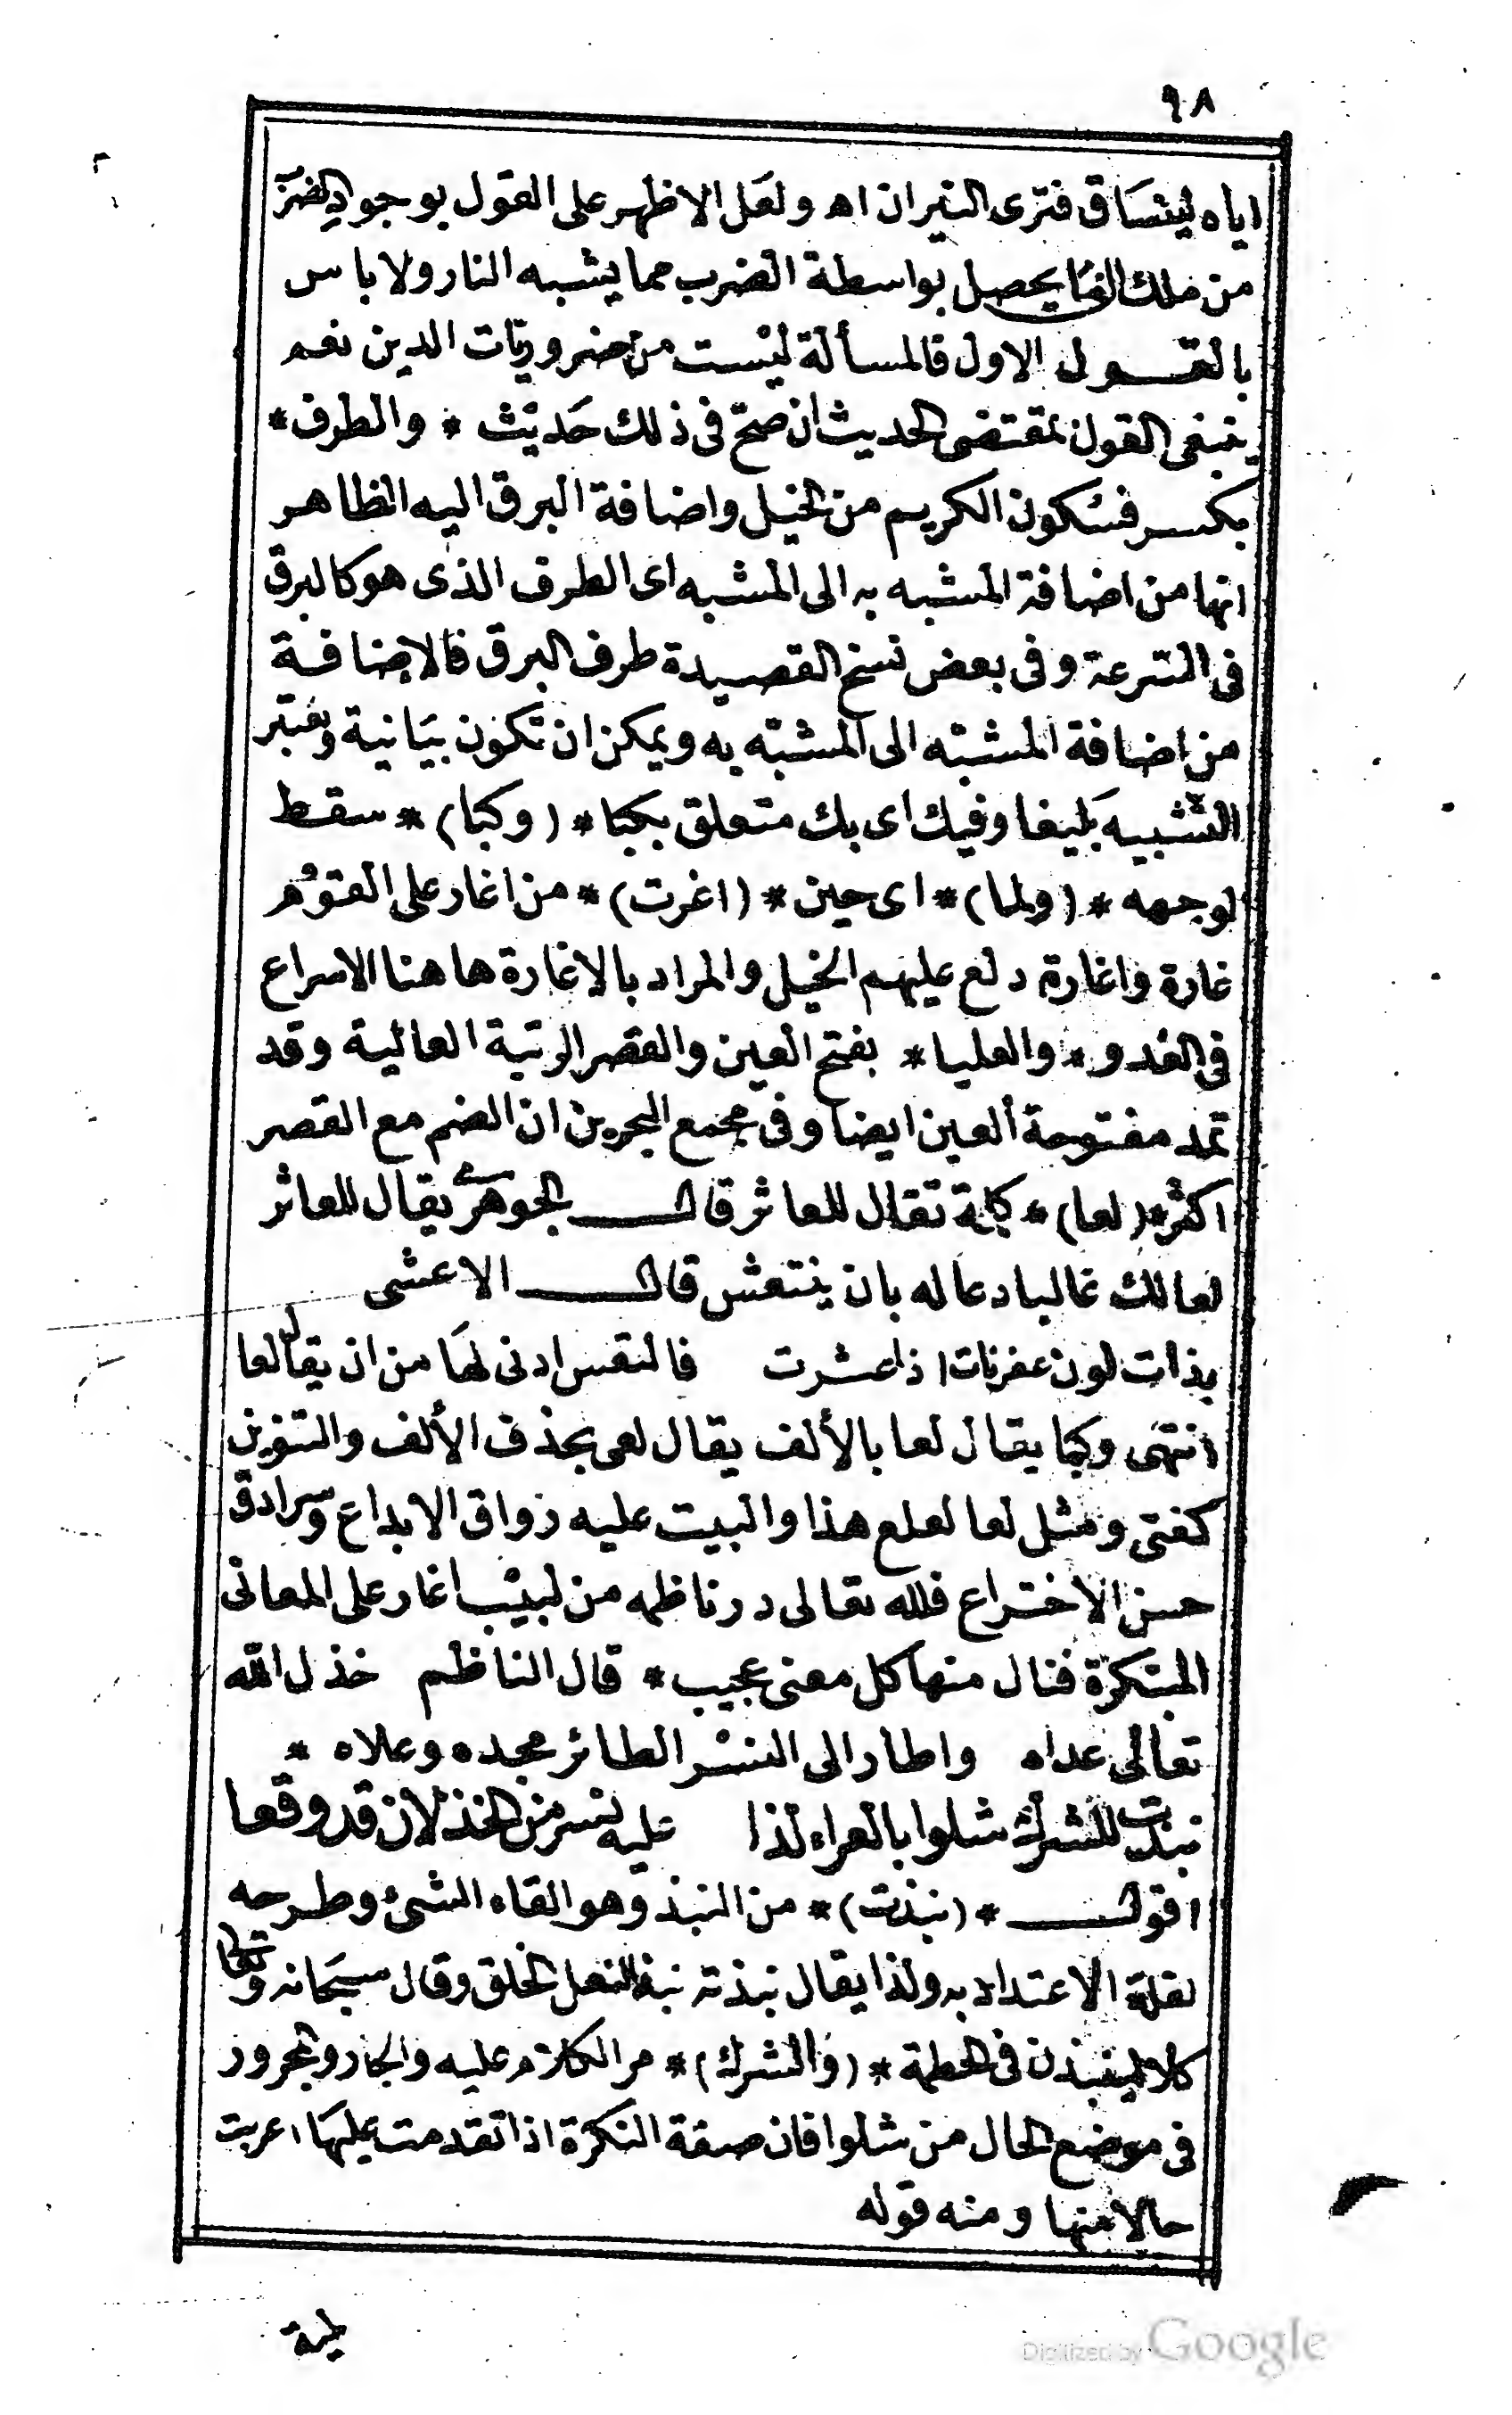 ٩٨
اياه لينساق فترى النيران اه ولعل الاظهر على القول بوجود الضرب
من ملك انما يحصل بواسطة الضرب مما يشبه النار ولا باس
بالقول الاول فالمسألة ليست من ضروريات الدين نعم
ينبغى القول بمقتضى الحديث ان صح فى ذلك حديث * والطرف *
بكسر فسكون الكريم من الخيل واضافة البرق اليه الظاهر
انها من اضافة المشبه به الى المشبه اى الطرف الذى هو كالبرق
فى السرعة وفى بعض نسخ القصيدة طرف البرق فالاضافة
من اضافة المشبه الى المشبه به ويمكن ان تكون بيانية ويعتبر
التشبيه بليغا وفيك اى بك متعلق بكبا * (وكبا) * سقط
لوجهه * (ولما) * اى حين * (اغرت) * من اغار على القوم
غارة واغارة دلع عليهم الخيل والمراد بالاغارة هاهنا الاسراع
فى العدو * والعليا * بفتح العين والقصر الرتبة العالية وقد
تمد مفتوحة ألعين ايضا وفى مجمع البحرين ان الضم مع القصر
اكثر * (لعا) * كلمة تقال للعاثر قال الجوهرى يقال للعاثر
لعا لك غالبا دعا له بان ينتعش قال الاعشى
بذات لون عفرنات اذا عثرت فالتعس ادنى لها من ان يقال لعا
انتهى وكما يقال لعا بالألف يقال لعى بحذف الألف والتنوين
كفتى ومثل لعا لعلع هذا والبيت عليه رواق الابداع وسرادق
حسن الاختراع فلله تعالى در ناظمه من لبيب اغار على المعانى
المبتكرة فنال منها كل معنى عجيب * قال الناظم خذل الله
تعالى عداه واطار الى النسر الطائر مجده وعلاه *
نبذت للشرك شلوا بالعراء لذا عليه نسر من الخذلان قد وقعا
اقول * (نبذت) * من النبذ وهو القاء الشئ وطرحه
لقلة الاعتداد به ولذا يقال نبذته نبذ النعل الخلق وقال سبحانه وتعالى
كلا لينبذن فى الحطمة * (والشرك) * مر الكلام عليه والجار والمجرور
فى موضع الحال من شلوا فان صفة النكرة اذا تقدمت عليها اعربت
حالا منها ومنه قوله
لمية
Digitized by Google